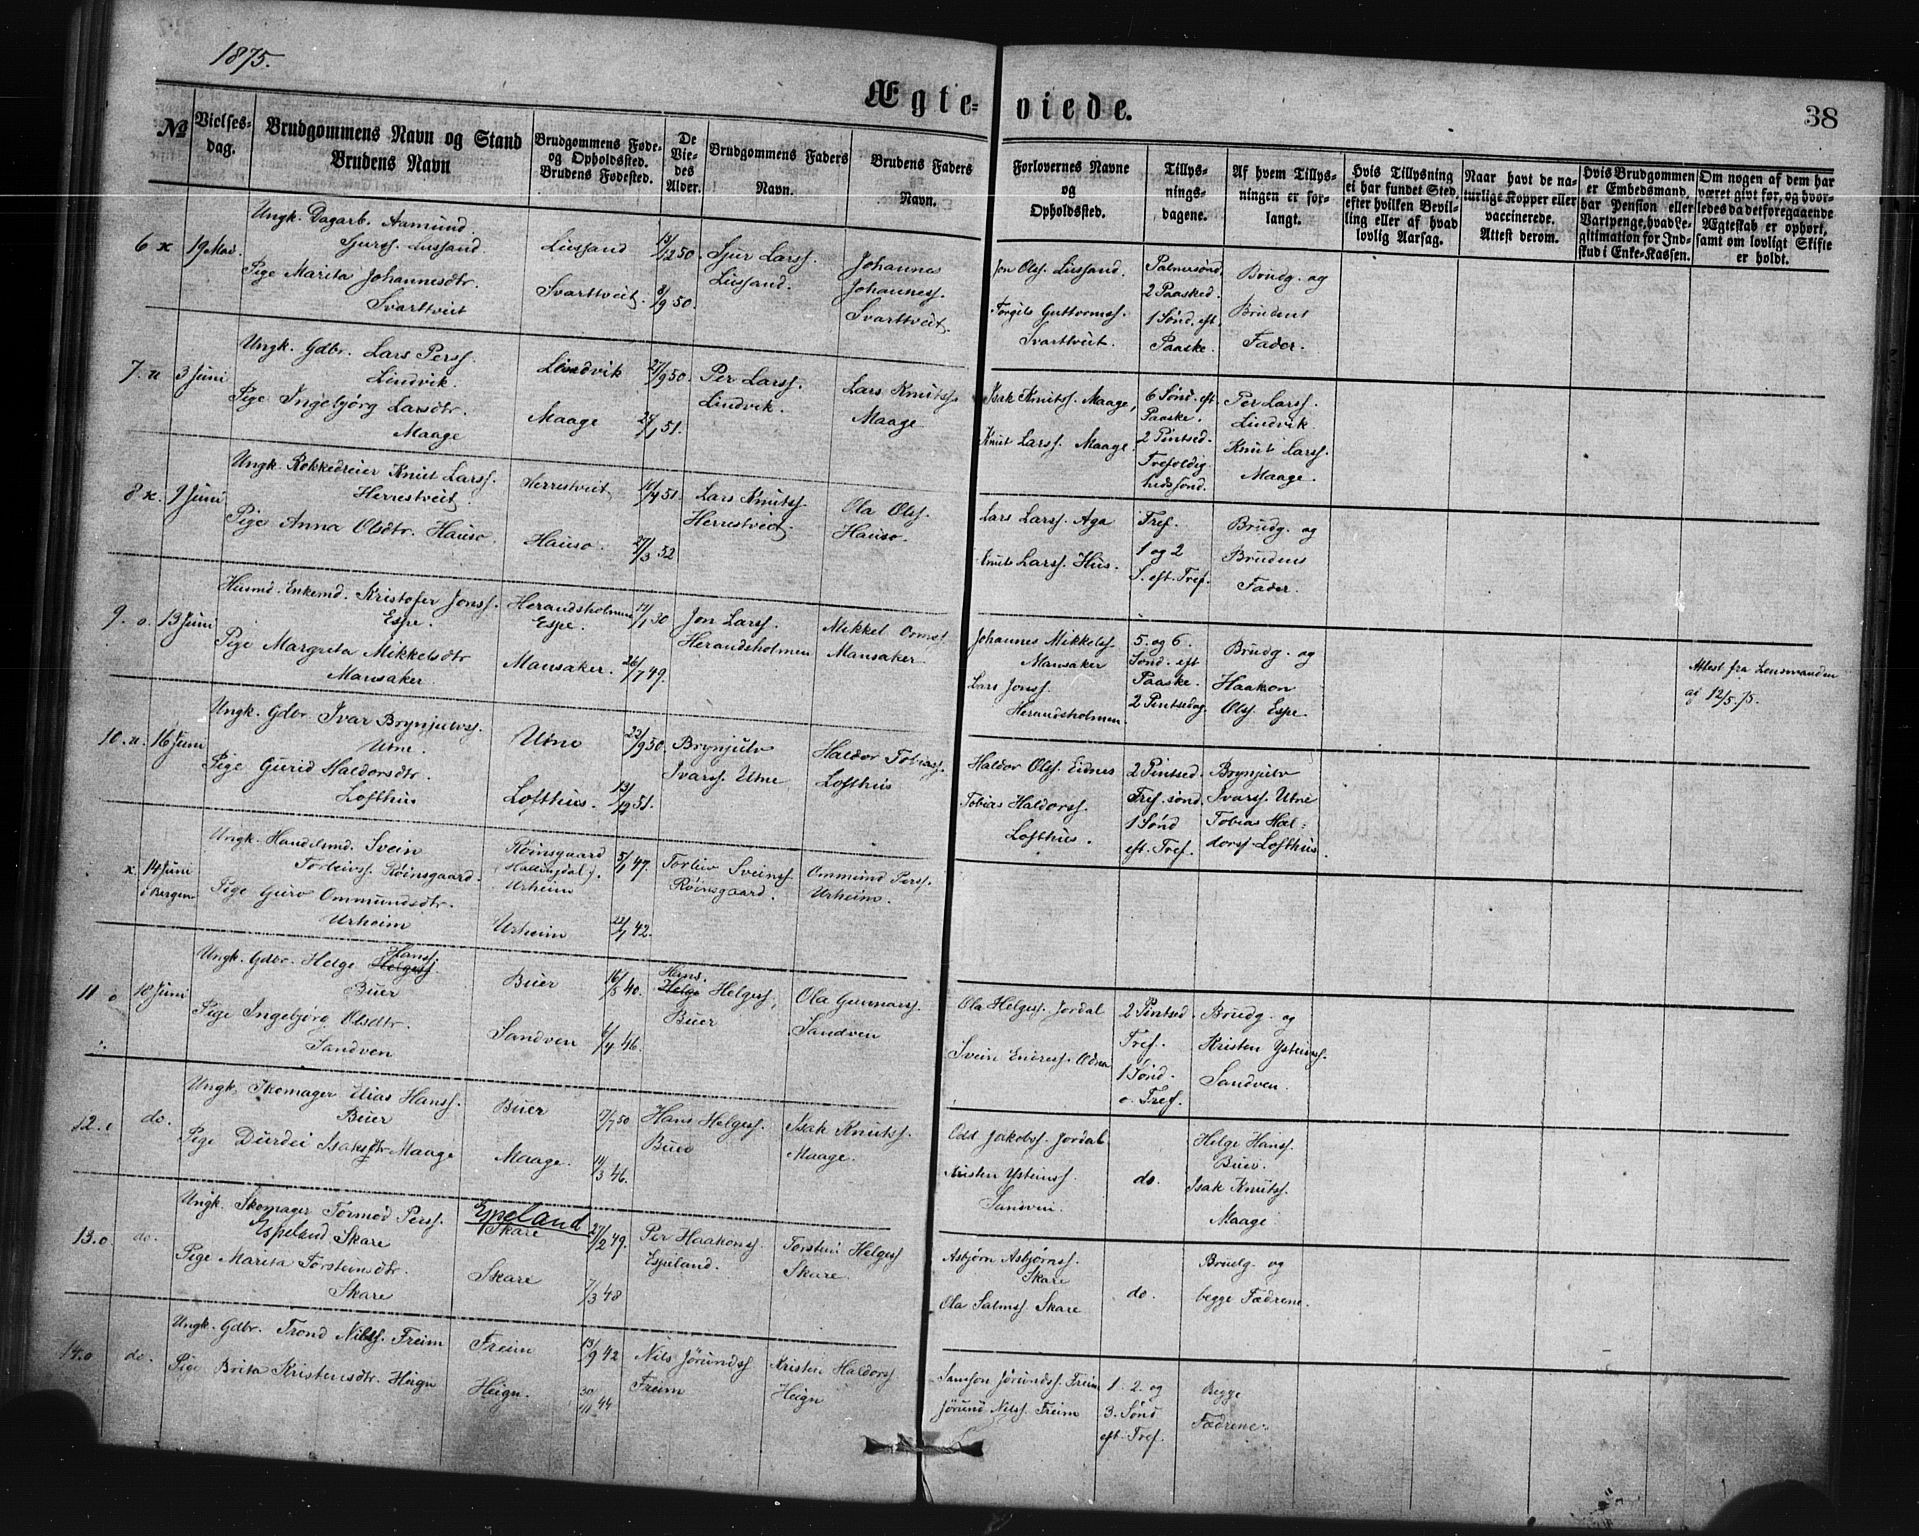 1875.
Ægte-viede.
38
№
Vielses-
dag.
Brudgommens Navn og Stand
Brudens Navn
Brudgommens Føde-
og Opholdssted.
Brudens Fødested.
De
Vie-
des
Alder.
Brudgommens Faders
Navn.
Brudens Faders
Navn.
Forlovernes Navne
og
Opholdssted.
Tillys-
nings-
dagene.
Af hvem Tillys-
ningen er for-
langt.
Hvis Tillysning
ei har fundet Sted,
efter hvilken Bevil-
ling eller af hvad
lovlig Aarsag.
Naar havt de na-
turlige Kopper eller
vaccinerede.
Attest derom.
Hvis Brudgommen
er Embedsmand,
har Pension eller
Vartpenge, hvad Le-
gitimation for Ind-
skud i Enke-Kassen.
Om nogen af dem har
været givt før, og hvor-
ledes da det foregaaende
Ægteskab er ophørt,
samt om lovligt Skifte
er holdt.
6 x 19 Mai
Ungk. Dagarb. Aamund
Sjurss. Lussand
Pige Marita Johannesdtr.
Svarttveit
Lussand
Svarttveit.
13/12 50.
8/9 50.
Sjur Larss.
Lussand.
Johannes
Johanness.
Svarttveit.
Jon Olss. Lussand.
Torgils Guttormss.
Svarttveit.
Palmesønd.
2 Paasked.
1 Sønd. eft.
Paaske.
Brudg. og
Brudens
Fader.
7. u 3 Juni
Ungk. Gdbr. Lars Perss.
Lindvik.
Pige Ingebjørg Larsdtr.
Maage
Lindvik
Maage
27/9 50.
24/1 51.
Per Larss.
Lindvik.
Lars Knutss.
Maage.
Isak Knutss. Maage,
Knut Larss. Maage.
6 Sønd. eft
Paaske.
2 Pintsed.
Trefoldig
hedssønd.
Per Larss.
Lindvik
Knut Larss.
Maage.
8 x. 9 Juni
Ungk. Rokkedreier Knut Larss.
Herrestveit
Pige Anna Olsdtr. Hauso.
Herrestveit
Hauso.
10/4 51.
27/3 52
Lars Knutss.
Herrestveit
Ola Olss.
Hauso.
Lars Larss. Aga
Knut Larss. Hus.
Tref.
1 og 2
S. eft. Tref.
Brudg. og
Brudens
Fader.
9. o. 13 Juni
Husmd. Enkemd. Kristofer Jonss.
Espe.
Pige Margreta Mikkelsdtr
Mansaker
Herandsholmen
Espe.
Mansaker.
17/1 30
26/7 49.
Jon Larss.
Herandsholmen
Mikkel Ormss.
Mansaker
Johannes Mikkelss.
Mansaker
Lars Jonss.
Herandsholmen
5. og 6.
Sønd. eft
Paaske.
2 Pintsedag.
Brudg. og
Haakon
Olss. Espe.
Attest fra Lensmanden
af 12/5. 75.
10. u. 16 Juni
Ungk. Gdbr. Ivar Brynjulvss.
Utne.
Pige Gurid Haldorsdtr.
Lofthus
Utne
Lofthus.
23/9 50.
13/12 51.
Brynjulv
Ivarss. Utne
Haldor Tobiass.
Lofthus
Haldor Olss. Eidnes
Tobias Haldorss.
Lofthus.
2 Pintsed.
Tref. sønd.
1 Sønd
eft. Tref.
Brynjulv
Ivarss. Utne
Tobias Hal-
dorss Lofthus.
x. 14 Juni
i Bergen
Ungk. Handelsmd. Svein
Torleivss. Røinsgaard.
Pige Guro Ommundsdtr.
Urheim
Røinsgaard
(Hallingdal).
Urheim
Urheim
5/1 47.
22/1 42.
Torleiv Sveinss.
Røinsgaard.
Ommund Perss.
Urheim.
11 o 18 Juni
Ungk. Gdbr. Helge Hanss.
Helgess.
Buer
Pige Ingebjørg Olsdtr.
Sandven
Buer
Sandven
16/8 40.
6/4 46.
Hans
Helge Helgess,
Buer
Ola Gunnarss.
Sandven
Ola Helgess. Jordal
Svein Endress. Odna
2 Pintsed.
Tref.
1 Sønd.
e. Tref.
Brudg. og
Kristen Ysteinss.
Sandven.
12. do.
Ungk. Skomager Elias Hanss.
Buer
Pige Durdei Isaksdtr Maage
Buer
Maage.
7/7 50
11/3 46.
Hans Helgess.
Buer
Isak Knutss.
Maage.
Odd Jakobss. Jordal
Kristen Ysteinss.
Sandven
do.
Helge Hanss.
Buer.
Isak Knutss.
Maage
13. o do.
Ungk. Skomager Tormod Perss.
Espeland Skare
Pige Marita Torsteinsdtr.
Skare
Espeland
Skare
Skare
27/2 49.
7/3 48
Per Haakonss.
Espeland.
Torstein Helgess
Skare.
Asbjørn Asbjørnss.
Skare
Ola Salmss. Skare
do.
Brudg. og
begge Fædrene.
14. o do.
Ungk. Gdbr. Trond Nilss. Freim
Pige Brita Kristensdtr. Høign
Freim
Høign.
13/9 42
30/11 44
Nils Jørundss
Freim
Kristen Haldorss
Høign
Samson Jørundss. Freim
Jørund Nilss. Freim
1. 2. og
3. Sønd
eft. Tref.
Begge
Fædrene.